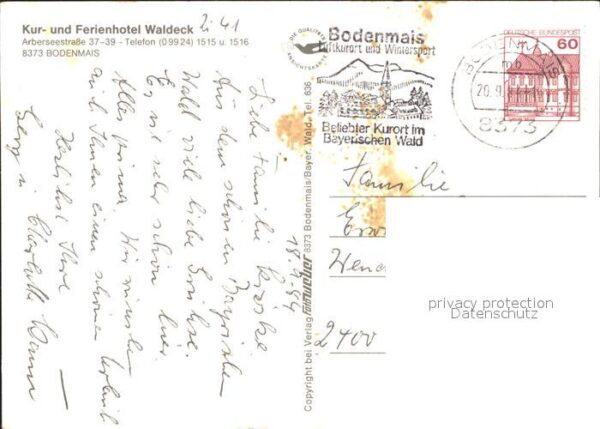 Kur- und Ferienhotel Waldeck
Arberseestraße 37-39 - Telefon (0 99 24) 1515 u. 1516
8373 BODENMAIS
Zi 41
18.9.84
Liebe Familie
Aus dem schönen Bayrischen
Wald viele liebe Grüße.
Es ist sehr schön hier.
Alles prima. Wir wünschen
auch Ihnen einen schönen Urlaub
Herzlichst Ihre
Georg u. Charlotte
Copyright bei Verlag 8373 Bodenmais/Bayer. Wald, Tel. 636
DIE QUALITÄTS
ANSICHTSKARTE
Bodenmais
Luftkurort und Wintersport
Beliebter Kurort im
Bayerischen Wald
BODENMAIS
mb
20.9.
8373
DEUTSCHE BUNDESPOST
60
Familie
Wend
2400
privacy protection
Datenschutz